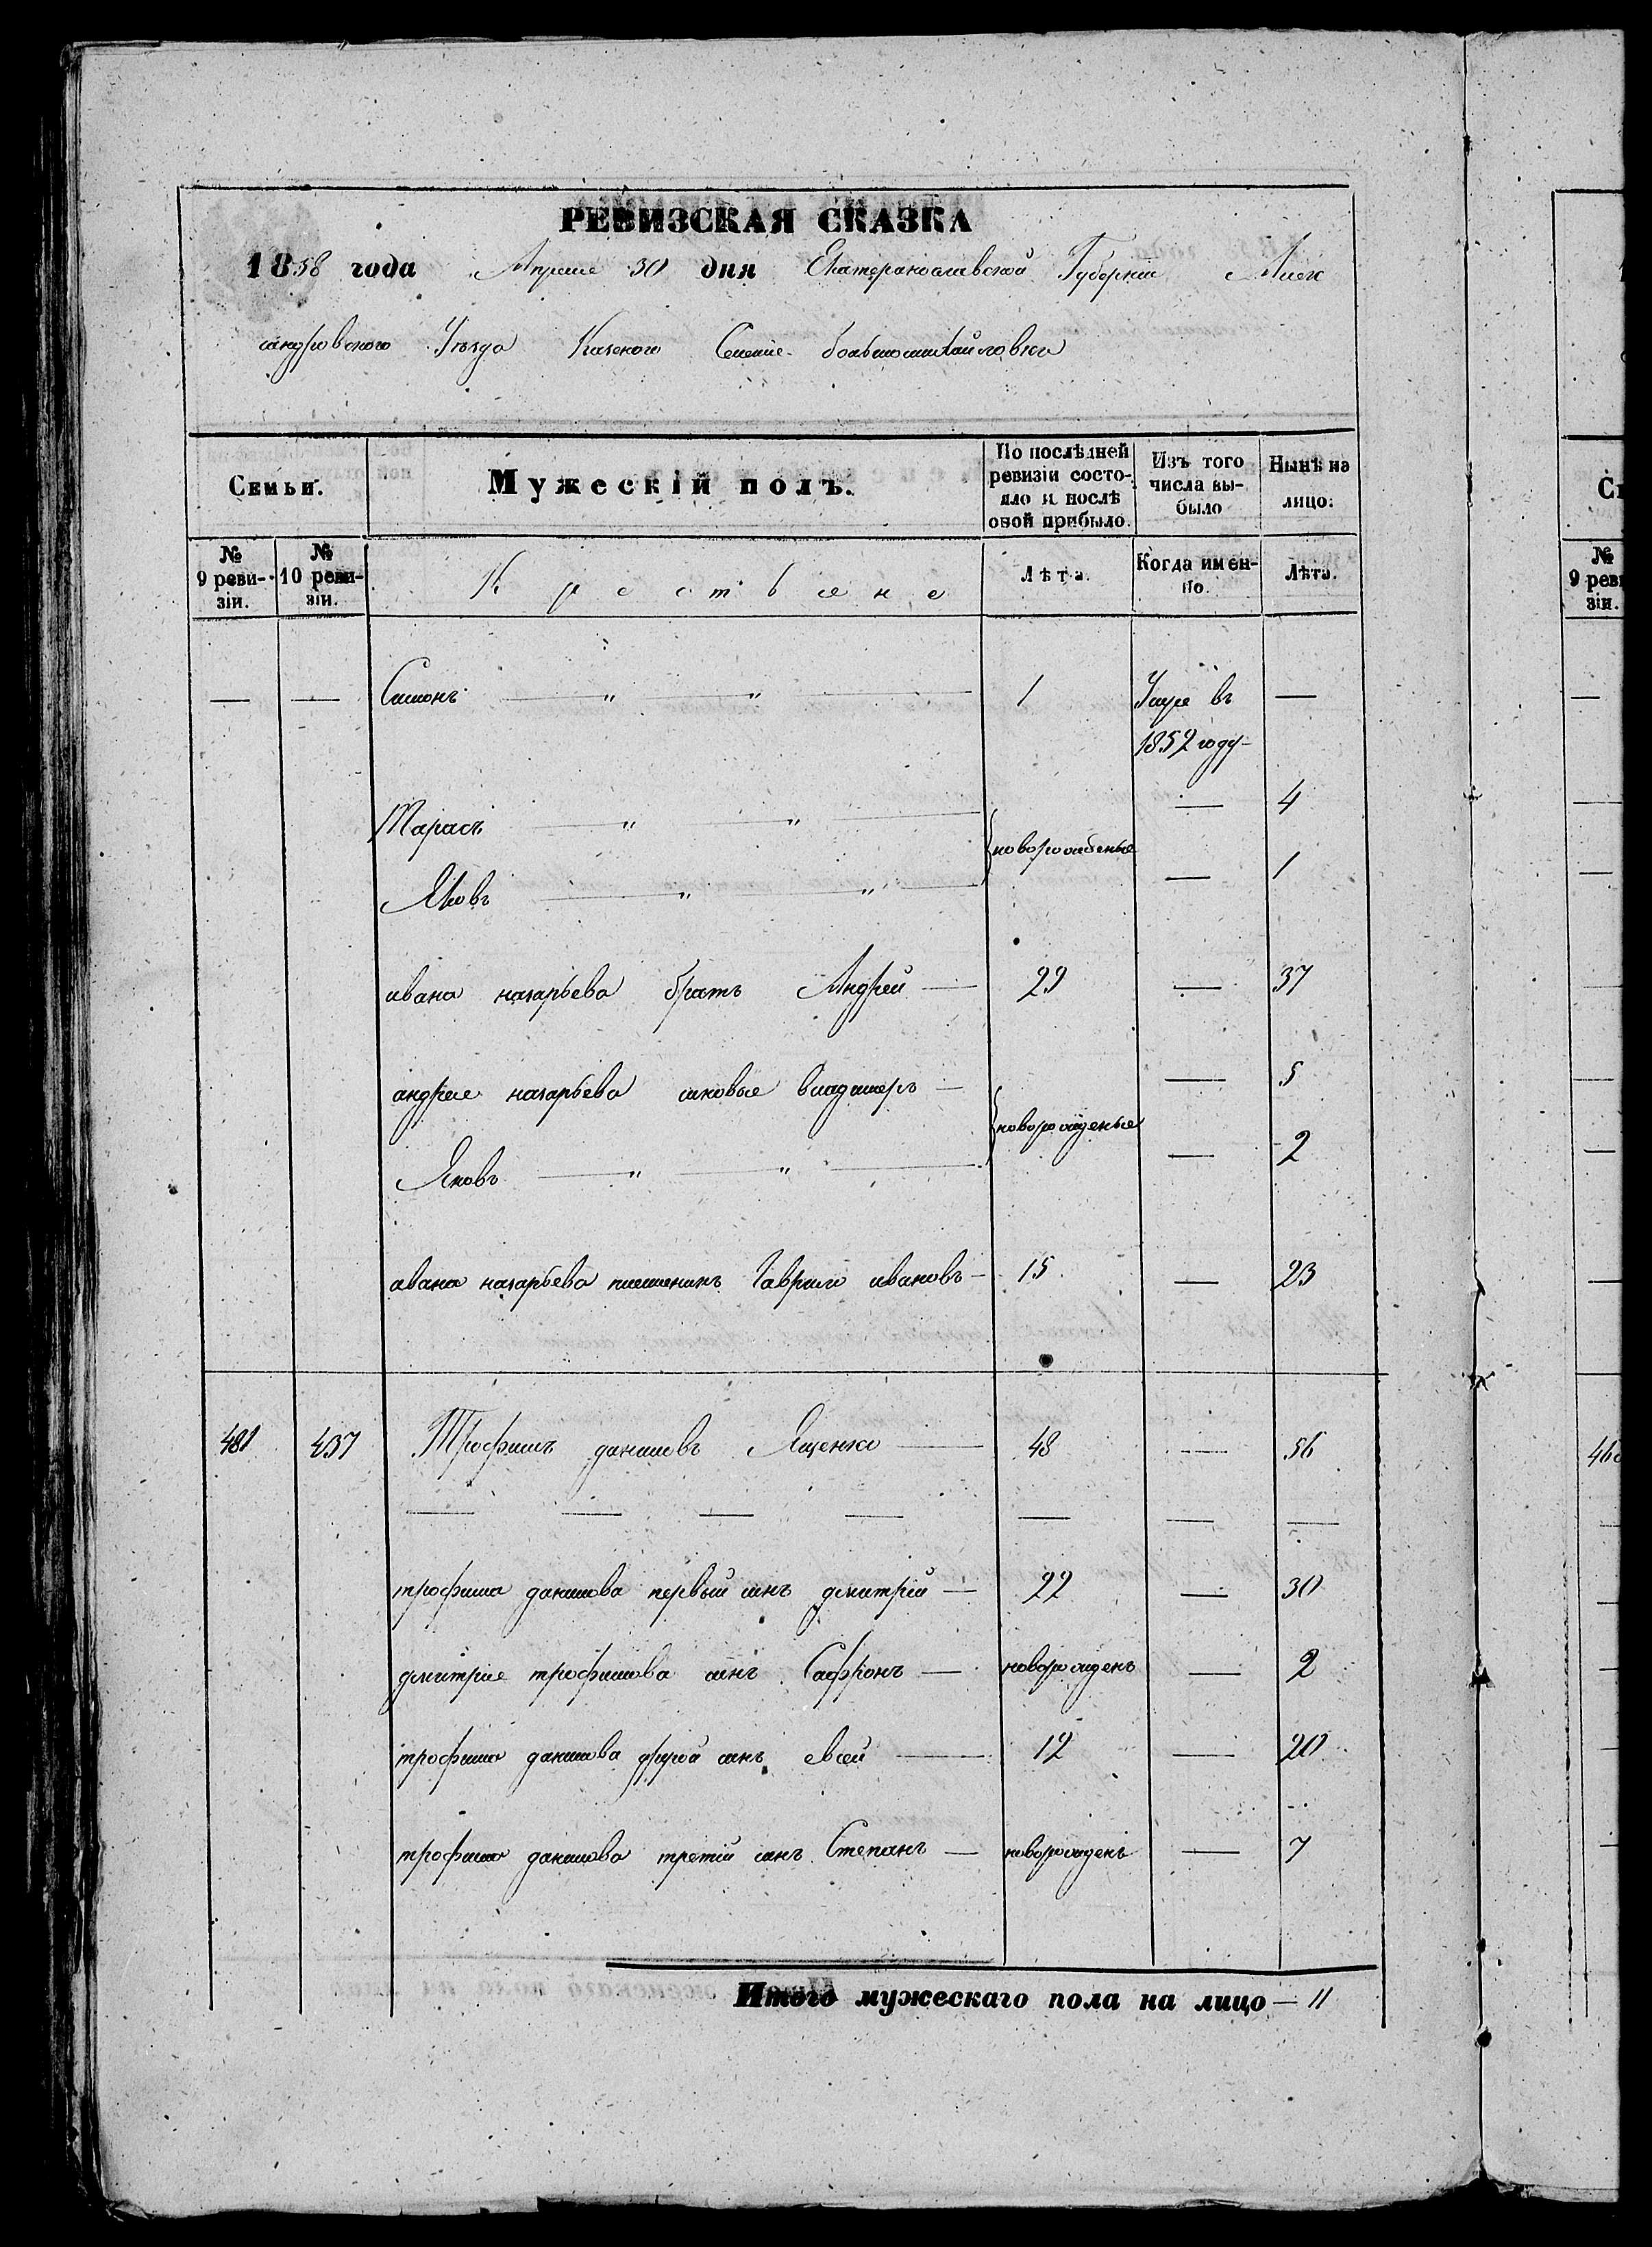 РЕВИЗСКАЯ СКАЗКА
1858 года Апреля 30 дня Екатеринославской Губернии Алек
сандровского Уезда Казеного Селение большомихайловки
Семьи. Мужескій полъ. По послѣдней ревизіи состояло и послѣ овой прибыло. Изъ того числа выбыло Нынѣ на лицо:
№ 9 ревизіи. № 10 ревизіи. Крестьяне Лѣта. Когда именно. Лѣта.
— — Симонъ — " — " — 1 Умре въ —
1852 году
Тарасъ — " — " — — 4
новорожденые
Яковъ — " — " — — 1
ивана назарьева братъ Андрей — 29 — 37
андрея назарьева синовья владимеръ — — 5
новорожденые
Яковъ — " — " — — 2
ивана назарьева племеникъ Гаврило ивановъ — 15 — 23
481 437 Трофимъ даниловъ Яценко — 48 — 56
— — — — — — —
трофима данилова первый синъ дмитрій — 22 — 30
дмитрия трофимова синъ Сафронъ — новорожденъ — 2
трофима данилова другой синъ евсей — 12 — 20
трофима данилова третій синъ Степанъ — новорожденъ — 7
Итого мужескаго пола на лицо — 11
Се
№ 9 реви-зіи.
460